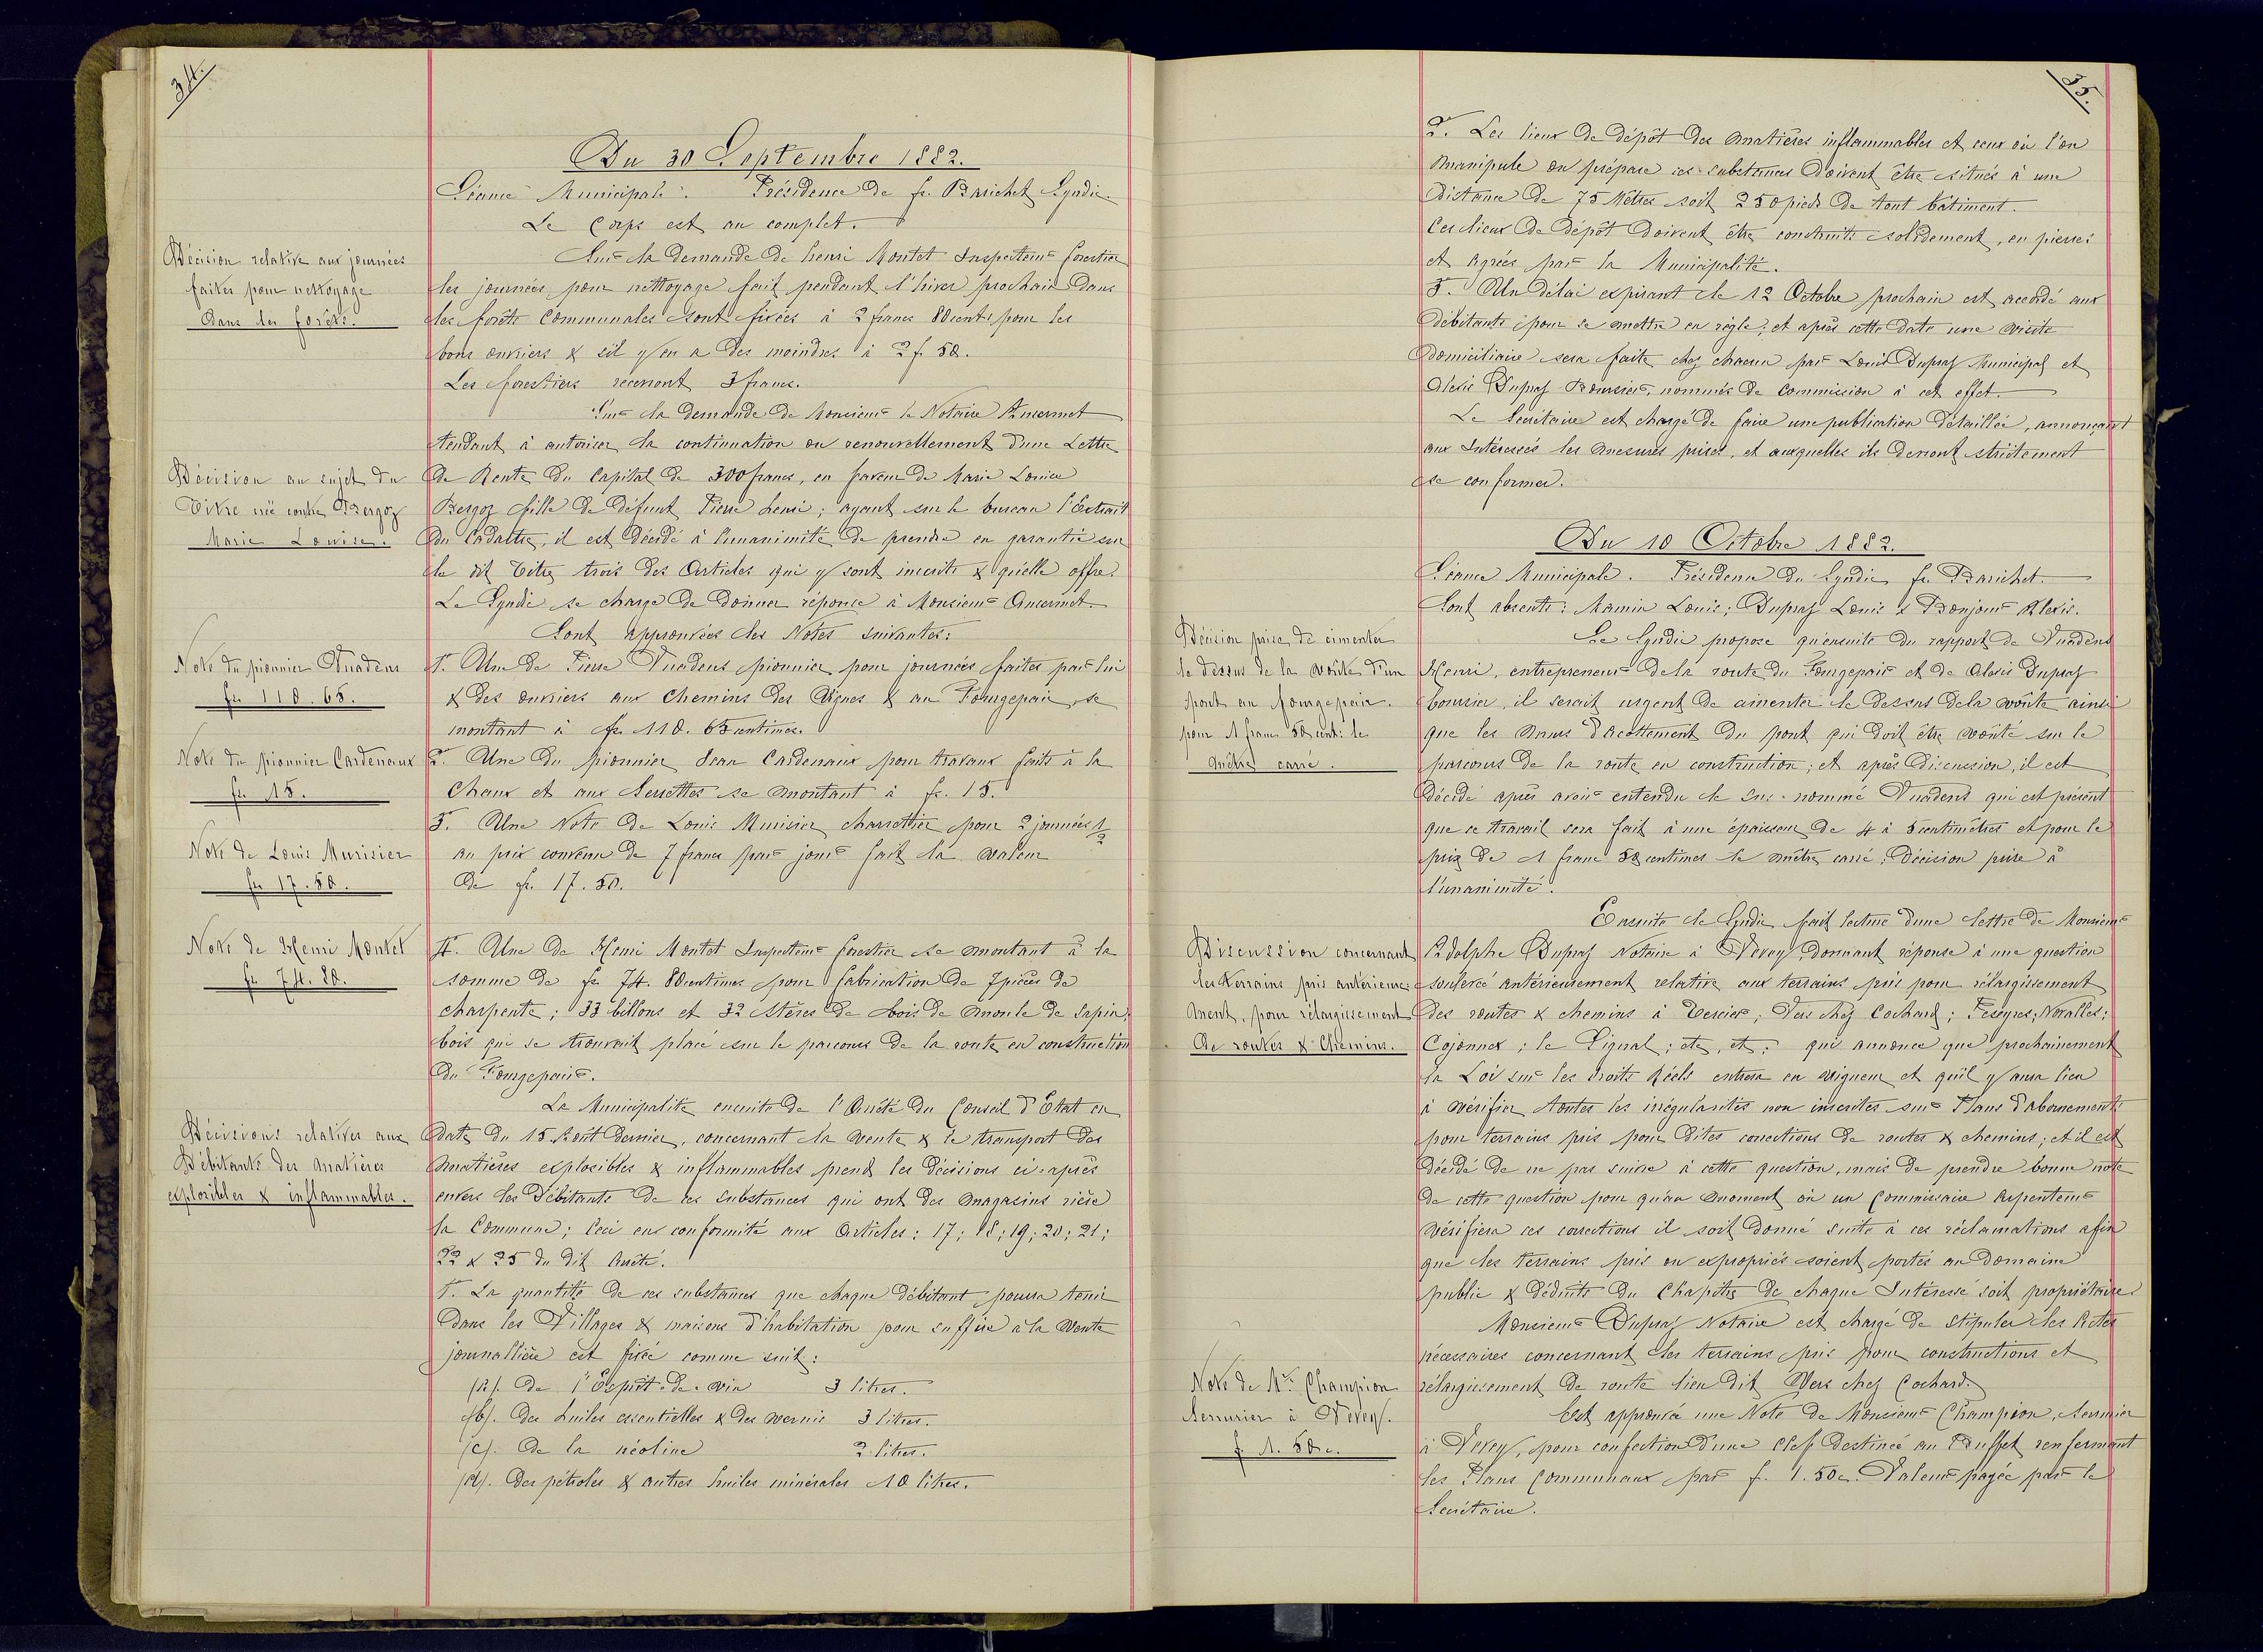 34.
Du 30 Septembre 1882.
Séance Municipale. Présidence de fs. Barichet Syndic.
Le Corps est au complet.
Décision relative aux journées
faites pour nettoyage
dans les forêts.
Sur la demande de henri Montet Inspecteur forestier
les journées pour nettoyage fait pendant l'hiver prochain dans
les forêts Communales sont fixées à 2 francs 80 cents pour les
bons ouvriers & s'il y en a des moindres à 2 f. 50.
Les forestiers recevront 3 francs.
Sur la demande de Monsieur le Notaire Ansermet
tendant à autoriser la continuation ou renouvellement d'une Lettre
Décision au sujet du
Titre créé contre Bergoz
Marie Louise.
de Rente du Capital de 300 francs, en faveur de Marie Louise
Bergoz fille de défunt Pierre henri; ayant sur le bureau l'Extrait
du Cadastre, il est décidé à l'unanimité de prendre en garantie sur
le dit Titre trois des Articles qui y sont inscrits & qu'elle offre.
Le Syndic se charge de donner réponse à Monsieur Ansermet.
Sont approuvées les Notes suivantes:
Note du pionnier Vuadens
fr. 110. 65.
1°. Une de Pierre Vuadens pionnier pour journées faites par lui
& des ouvriers aux Chemins des Vignes & au Fougepair, se
montant à fr. 110. 65 centimes.
Note du pionnier Cardenaux
fr. 15.
2°. Une du pionnier Jean Cardenaux pour travaux faits à la
Chaux et aux Serrettes se montant à fr. 15.
Note de Louis Murisier
fr. 17. 50.
3°. Une Note de Louis Murisier charrettier pour 2 journées 1/2
au prix convenu de 7 francs par jour fait la valeur
de fr. 17. 50.
Note de Henri Montet
fr. 74. 80.
4°. Une de Henri Montet Inspecteur forestier se montant à la
somme de fr. 74. 80 centimes pour fabrication de 7 pièces de
charpente; 33 billons et 32 stères de bois de moule de sapin,
bois qui se trouvait placé sur le parcours de la route en construction
du Fougepair.
Décisions relatives aux
Débitants des matières
explosibles & inflammables.
La Municipalité ensuite de l'Arrêté du Conseil d'Etat en
date du 15 Août dernier, concernant la vente & le transport des
matières explosibles & inflammables prend les décisions ci-après
envers les Débitants de ces substances qui ont des magasins rière
la Commune; Ceci en conformité aux Articles: 17; 18; 19; 20; 21;
22 & 25 du dit Arrêté.
1°. La quantité de ces substances que chaque débitant pourra tenir
dans les Villages & maisons d'habitation pour suffire à la Vente
journallière est fixée comme suit:
(a). De l'Esprit-de-vin 3 litres.
(b). Des huiles essentielles & des vernis 3 litres.
(c). De la néoline 2 litres.
(d). Des pétroles & autres huiles minérales 10 litres.
35.
2°. Les lieux de dépôt des matières inflammables et ceux où l'on
manipule ou prépare ces substances doivent être situés à une
distance de 75 Mètres soit 250 pieds de tout bâtiment.
Ces lieux de dépôt doivent être construits solidement, en pierres
et agréés par la Municipalité.
3°. Un délai expirant le 12 Octobre prochain est accordé aux
débitants pour se mettre en règle; et après cette date une visite
domiciliaire sera faite chez chacun par Louis Dupraz Municipal et
Alexis Dupraz Boursier, nommés de Commission à cet effet.
Le Secrétaire est chargé de faire une publication détaillée, annonçant
aux Intéressés les mesures prises, et auxquelles ils devront strictement
se conformer.
Du 10 Octobre 1882.
Séance Municipale. Présidence du Syndic fs. Barichet.
Sont absents: Mamin Louis; Dupraz Louis & Bonjour Alexis.
Décision prise de cimenter
le dessus de la voûte d'un
pont au fougepair.
pour 1 franc 50 cent: le
mètre carré.
Le Syndic propose qu'ensuite du rapport de Vuadens
Henri, entrepreneur de la route du Fougepair et de Alexis Dupraz
boursier, il serait urgent de cimenter le dessus de la voûte ainsi
que les murs d'acottement du pont qui doit être voûté sur le
parcours de la route en construction; et après discussion, il est
décidé après avoir entendu le sus-nommé Vuadens qui est présent
que ce travail sera fait à une épaisseur de 4 à 5 centimètres et pour le
prix de 1 franc 50 centimes le mètre carré; Décision prise à
l'unanimité.
Discussion concernant
les terrains pris antérieure-
ment, pour rélargissement
de routes & Chemins.
Ensuite le Syndic fait lecture d'une lettre de Monsieur
Adolphe Dupraz Notaire à Vevey, donnant réponse à une question
soulevée antérieurement relative aux terrains pris pour rélargissement
des routes & chemins à Tercier; Vers chez Cochard; Feseyres; Novalles;
Cojonnex; le Signal; etc, etc; qui annonce que prochainement
la Loi sur les droits Réels entrera en vigueur et qu'il y aura lieu
à vérifier toutes les irrégularités non inscrites sur Plans d'Abornements
pour terrains pris pour dites corrections de routes & chemins; et il est
décidé de ne pas suivre à cette question, mais de prendre bonne note
de cette question pour qu'au moment où un Commissaire Arpenteur
vérifiera ces corrections il soit donné suite à ces réclamations afin
que les terrains pris ou expropriés soient portés au Domaine
public & déduits du Chapitre de chaque Intéressé soit propriétaire.
Monsieur Dupraz Notaire est chargé de stipuler les Actes
nécessaires concernant les terrains pris pour constructions et
rélargissement de route lieu dit Vers chez Cochard.
Note de Mr. Champion
serrurier à Vevey.
f. 1. 50 c.
Est approuvée une Note de Monsieur Champion, serrurier
à Vevey, pour confection d'une clef destinée au Buffet renfermant
les Plans Communaux par f. 1. 50 c. Valeur payée par le
Secrétaire.